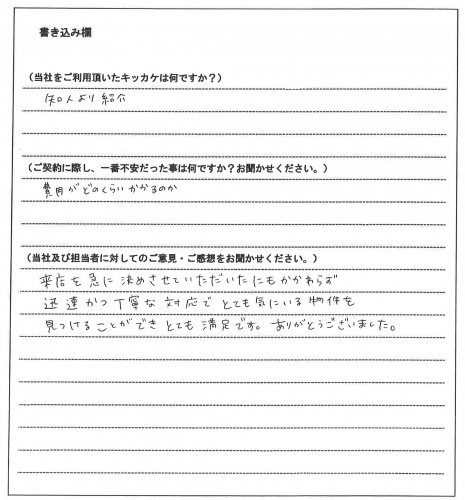 書き込み欄
（当社をご利用頂いたキッカケは何ですか？）
知人より紹介
（ご契約に際し、一番不安だった事は何ですか？お聞かせください。）
費用がどのくらいかかるのか
（当社及び担当者に対してのご意見・ご感想をお聞かせください。）
来店を急に決めさせていただいたにもかかわらず
迅速かつ丁寧な対応でとても気にいる物件を
見つけることができとても満足です。ありがとうございました。